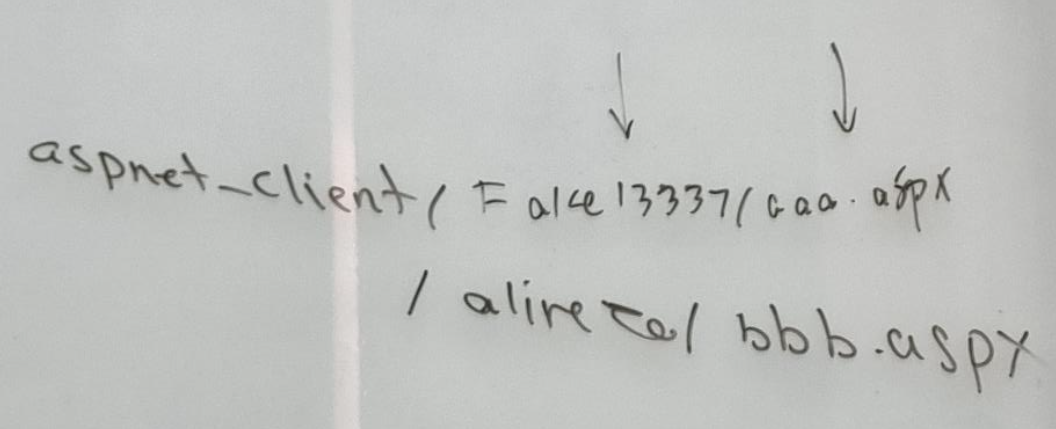 aspnet_client/ Fake13337/aaa.aspx
/ alireza/ bbb.aspx